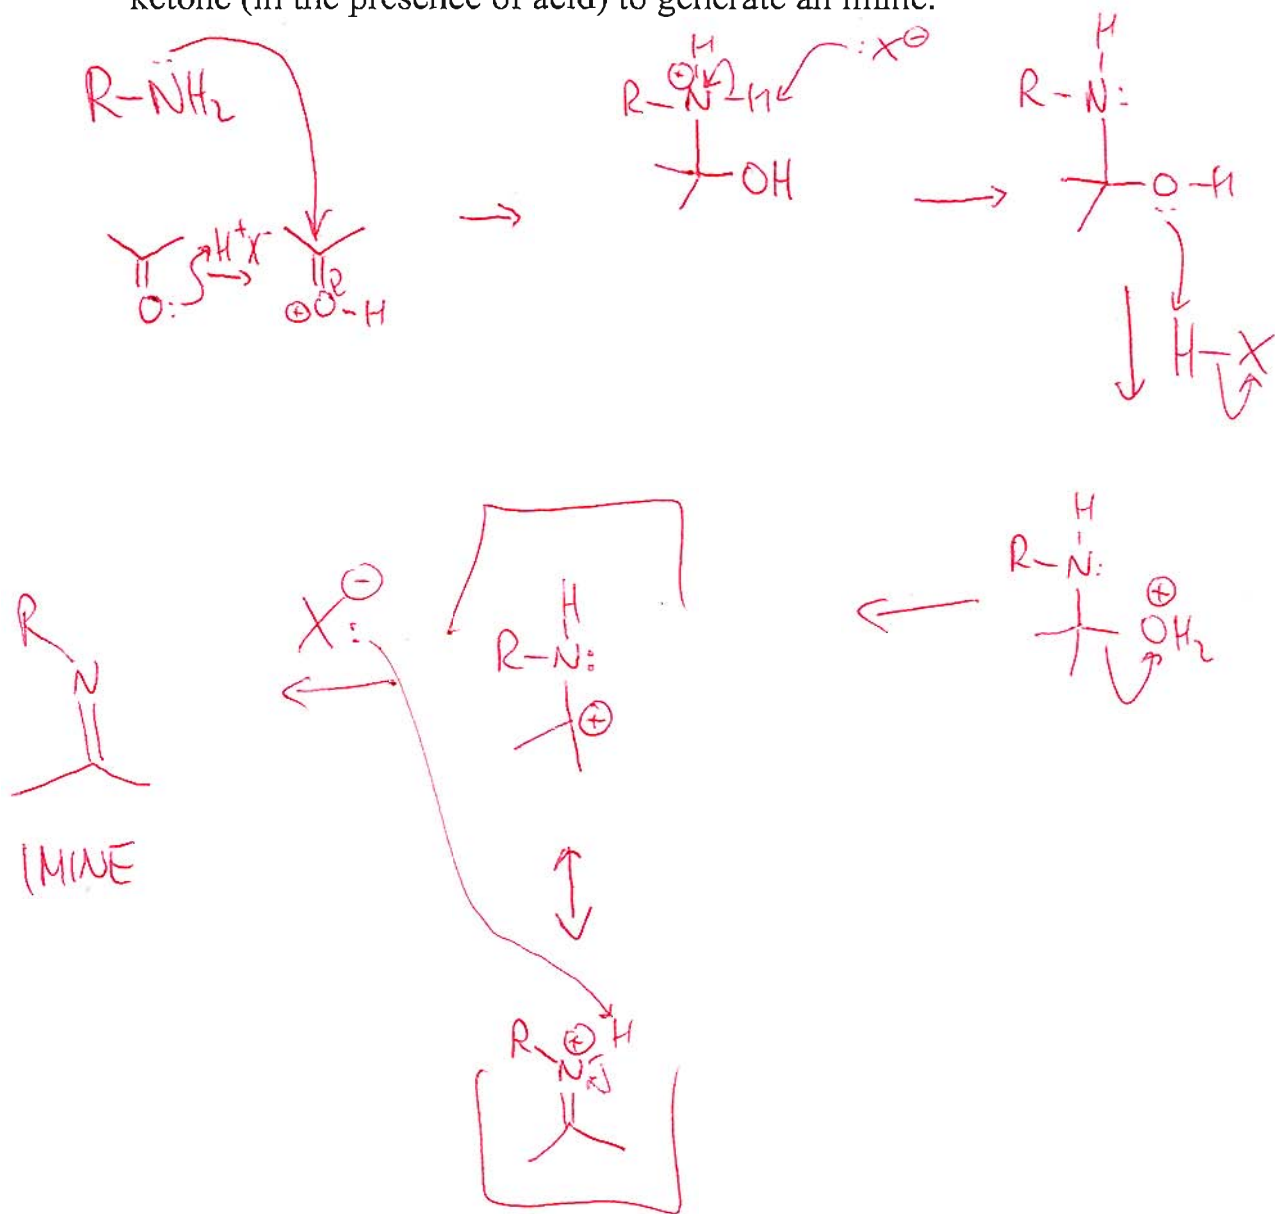 ketone (in the presence of acid) to generate an imine.
R-NH2
H+X-
O:
⊕O-H
H
⊕
R-N-H
OH
:X⊖
H
R-N:
O-H
H-X
H
R-N:
⊕
OH2
H
R-N:
⊕
R
⊕
H
N
X⊖
:
R
N
IMINE